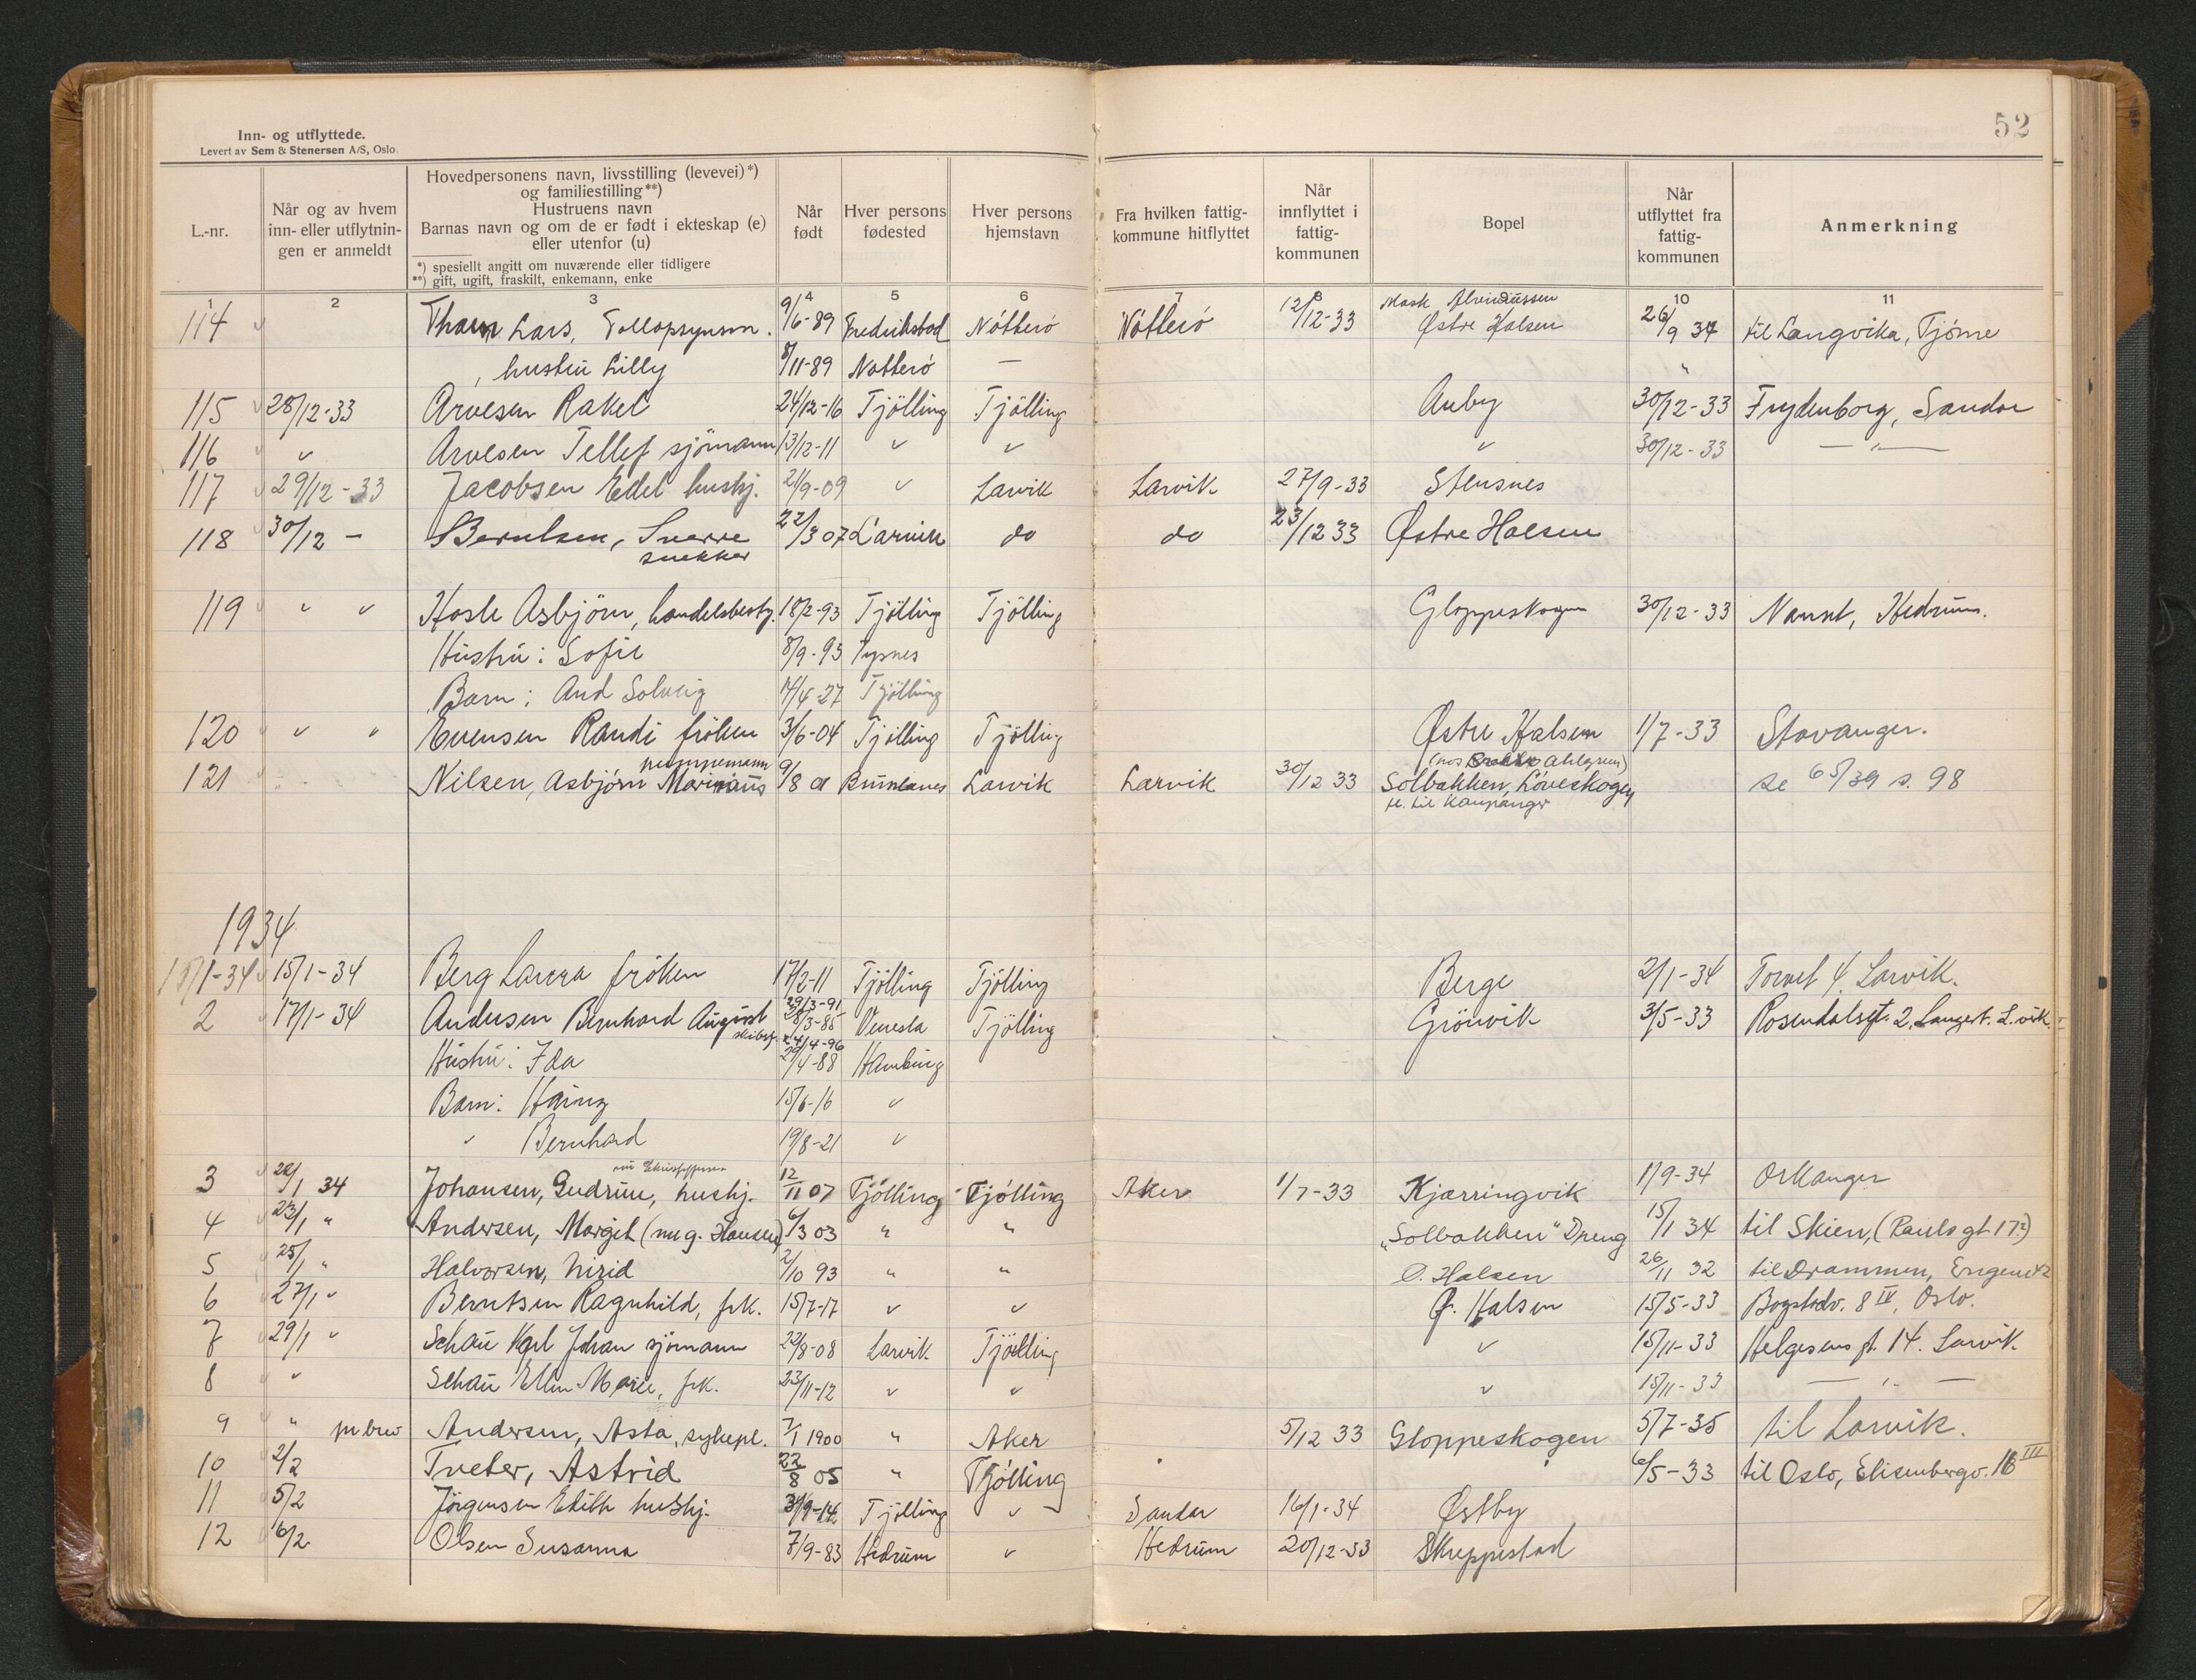 52
Inn- og utflyttede.
Levert av Sem & Stenersen A/S, Oslo.
L.-nr.
Når og av hvem
inn- eller utflytnin-
gen er anmeldt
Hovedpersonens navn, livsstilling (levevei)*)
og familiestilling**)
Hustruens navn
Barnas navn og om de er født i ekteskap (e)
eller utenfor (u)
*) spesiellt angitt om nuværende eller tidligere
**) gift, ugift, fraskilt, enkemann, enke
Når
født
Hver persons
fødested
Hver persons
hjemstavn
Fra hvilken fattig-
kommune hitflyttet
Når
innflyttet i
fattig-
kommunen
Bopel
Når
utflyttet fra
fattig-
kommunen
Anmerkning
1 2 3 4 5 6 7 8 10 11
114 Lars, 9/6-89 Fredrikstad Nötterö Nötterö 12/12-33 Østre Halsen 26/9 34 til Langvika, Tjöme
hustru Lilly 8/11-89 Nötterö — "
115 28/12-33 Arvesen Rakel 24/12-16 Tjölling Tjölling Auby 30/12-33 Frydenborg, Sandar
116 " Arvesen Tellef sjömann 13/12-11 " " " 30/12-33 — " —
117 29/12-33 Jacobsen Edel hushj. 21/9-09 " Larvik Larvik 27/9-33 Stensnes
118 30/12 - Berntsen, Sverre 22/3 07 Larvik do do 23/12 33 Østre Halsen
snekker
119 " " Hosle Asbjörn, handelsbesty. 18/2-93 Tjölling Tjölling Gloppeskogen 30/12-33 Nanset, Hedrum.
Hustru: Sofie 8/9-93 Tysnes
Barn: Aud Solveig 14/4-27 Tjölling
120 " " Evensen Randi fröken 3/6-04 Tjölling Tjölling Østre Halsen 1/7-33 Stavanger.
pumpemann (hos Ahlgren)
121 Nilsen, Asbjörn Marinius 9/8 01 Brunlanes Larvik Larvik 30/12 33 Solbakken, Löveskogen se 65/39 s. 98
fl. til Kaupanger
1934
1 15/1-34 15/1-34 Berg Laura fröken 17/2-11 Tjölling Tjölling Berge 2/1-34 Torvet 4. Larvik.
2 17/1-34 Andersen Bernhard August 29/3-91 28/3-85 Venesla Tjölling Grönvik 3/5-33 Rosendalsgt. 2, Langest. L.vik.
Hustru: Ida 24/4-96 29/4-88 Hamburg
Barn: Hainz 15/6-16 "
" Bernhard 19/8-21 "
3 22/1 34 Johansen, Gudrun, hushj. 12/11 07 Tjölling Tjölling Aker 1/7-33 Kjærringvik 1/9-34 Orkanger
4 23/1 " Andersen, Margit (nu g. Hansen) 6/3 03 " " „Solbakken" Dreng 15/1 34 til Skien, (Rauls gt 17?)
5 25/1 " Halvorsen, 2/10 93 " " Ö. Halsen 26/11 32 til Drammen,
6 27/1 " Berntsen Ragnhild, frk. 15/7-17 " " Ø. Halsen 15/5-33 Bogstadv. 8 IV, Oslo.
7 29/1 " Schau Karl Johan sjömann 22/8-08 Larvik Tjölling " 15/11-33 Helgesens gt. 14. Larvik.
8 " Schau Elin Marie, frk. 23/11-12 " " " 15/11-33 — " —
9 " pr brev Andersen, Asta, sykepl. 7/1 1900 " Aker 5/12 33 Gloppeskogen 5/7-35 til Larvik.
10 2/2 Tveter, Astrid 22/8 05 " Tjölling 6/5-33 til Oslo, Elisenbergv. 16 III
11 5/2 Jörgensen Edith hushj. 31/9-14 Tjölling " Sandar 16/1-34 Østby
12 6/2 Olsen Susanna 7/9-83 Hedrum " Hedrum 20/12-33 Skreppestad